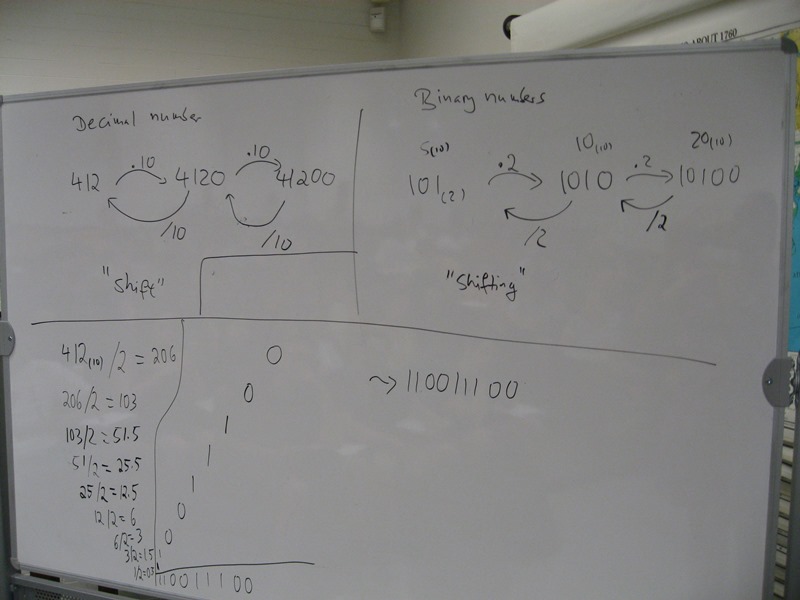 ABOUT 1260
Decimal number
.10 .10
412 4120 41200
/10 /10
"Shift"
Binary numbers
5(10) 10(10) 20(10)
.2 .2
101(2) 1010 10100
/2 /2
"Shifting"
412(10)/2 = 206 0
206/2 = 103 0
103/2 = 51.5 1
51/2 = 25.5 1
25/2 = 12.5 1
12/2 = 6 0
6/2 = 3 0
3/2 = 1.5 1
1/2 = 0.5 1
110011100
~> 110011100